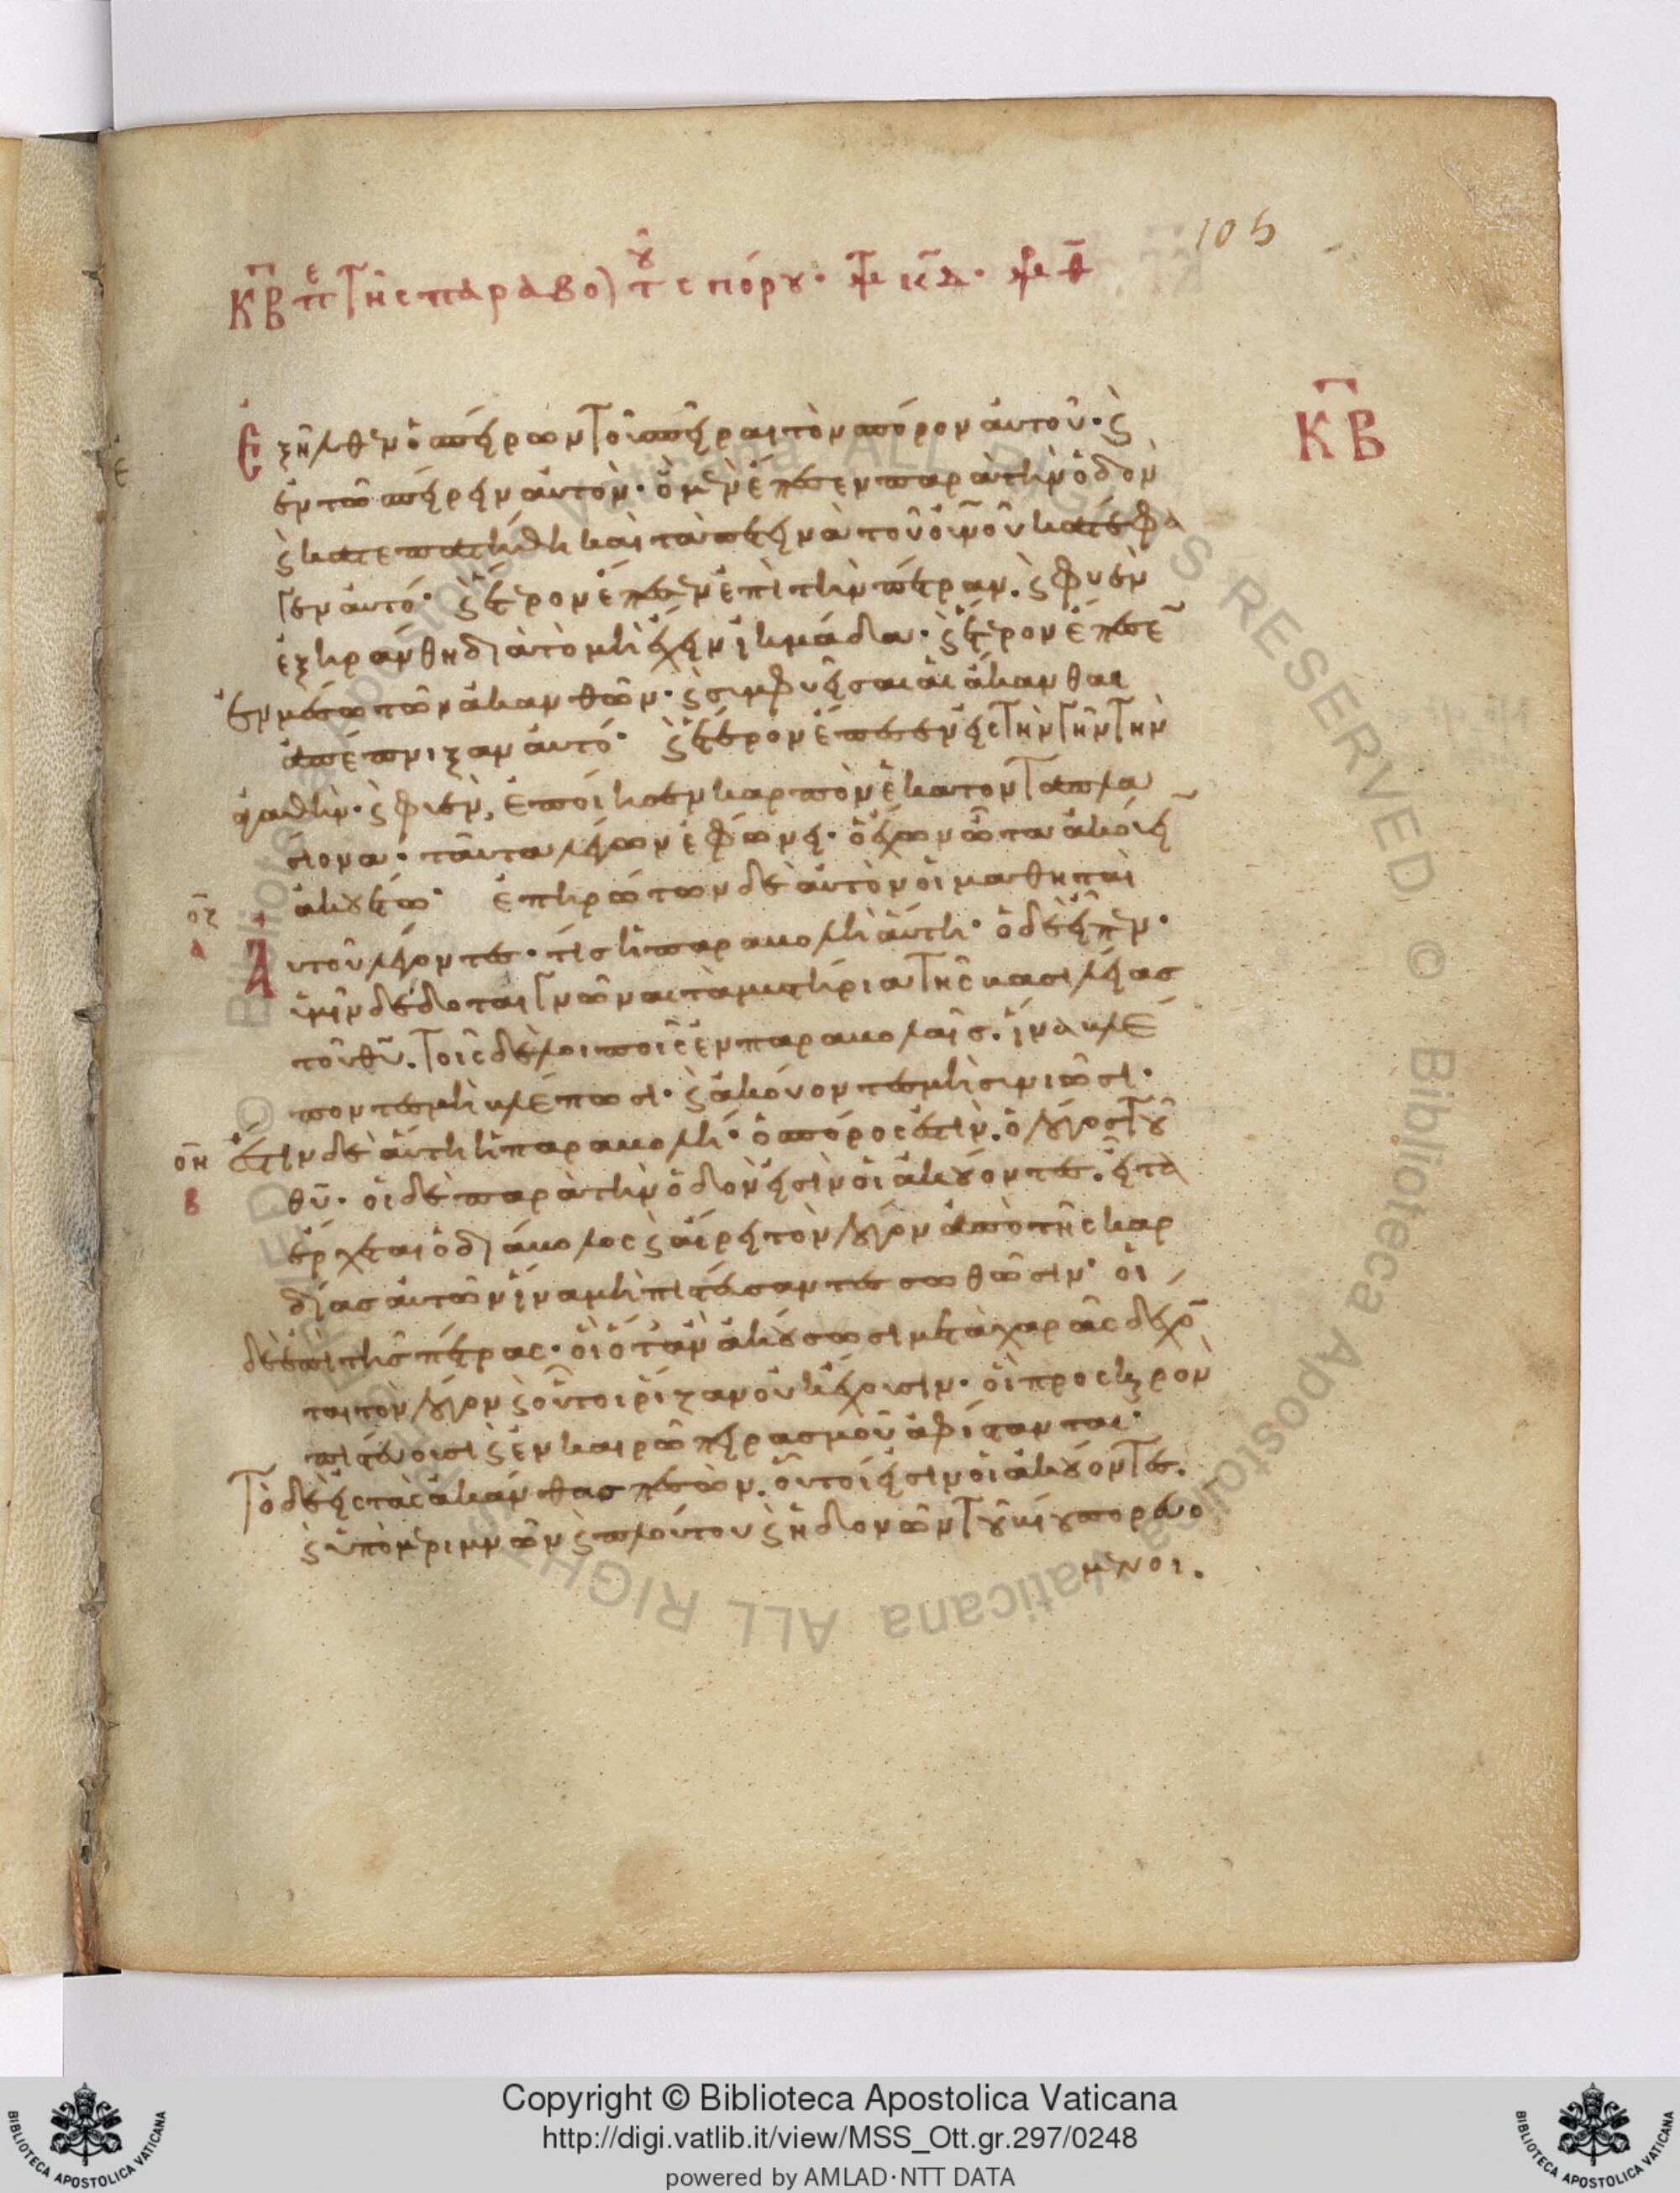 105
ΚΒ πε τῆς παραβο) τοῦ σπόρου· κδ·
ΚΒ
Ἐξῆλθεν ὁ σπείρων τοῦ σπεῖραι τὸν σπόρον αὐτοῦ· ϛ
ἐν τῶ σπείρειν αὐτὸν· ὁ μὲν ἔπεσεν παρὰ τὴν ὁδὸν
ϛ κατεπατήθη καὶ τὰ πετεινὰ τοῦ οὐνοῦ κατέφα
γεν αὐτό· ϛ ἕτερον ἔπεσεν ἐπὶ τὴν πέτραν. ϛ φυὲν
ἐξηράνθη διὰ τὸ μὴ ἔχειν ἰκμάδα· ϛ ἕτερον ἔπεσε
ἐν μέσω τῶν ἀκανθῶν· ϛ σιμφυεῖσαι αἱ ἄκανθαι
ἀπέπνιξαν αὐτό· ϛ ἕτερον ἔπεσεν εἰς τὴν γῆν τὴν
ἀγαθήν· ϛ φιὲν, ἐποίησεν καρπὸν ἑκατονταπλα
σίονα· ταῦτα λέγων ἐφώνει· ὁ ἔχων ὦτα ἀκούειν
ἀκουέτω· ἐπηρώτων δὲ αὐτὸν οἱ μαθηταὶ
οζ
α
Αὐτοῦ λέγοντες· τίς ἡ παραβολὴ αὕτη· ὁ δὲ εἶπεν·
ὑμῖν δέδοται γνῶναι τὰ μυστήρια τῆς βασιλείας
τοῦ θυ. τοῖς δὲ λοιποῖς ἐν παραβολαῖς. ἵνα βλέ
ποντες μὴ βλέπωσι· ϛ ἀκούοντες μὴ σινιῶσι·
οη
β
ἔστιν δὲ αὕτη ἡ παραβολή· ὁ σπόρος ἐστὶν. ὁ λόγος τοῦ
θυ· οἱ δὲ παρὰ τὴν ὁδόν εἰσὶν οἱ ἀκούοντες. εἶτα
ἔρχεται ὁ διάβολος ϛ αἴρει τὸν λόγον ἀπὸ τῆς καρ
δίας αὐτῶν ἵνα μὴ πιστεύσαντες σωθῶσιν· οἱ
δὲ ἐπὶ τῆς πέτρας· οἳ ὅταν ἀκούσωσι μετὰ χαρᾶς δέχο
ται τὸν λόγον ϛ οὗτοι ρίζαν οὐκ ἔχουσιν· οἳ πρὸς κερὸν
πιστεύουσι ϛ ἐν καιρῶ πειρασμοῦ ἀφίστανται·
Τὸ δὲ εἰς τὰς ἀκάνθας πεσὼν. οὗτοί εἰσιν οἱ ἀκούοντες.
ϛ ὑπὸ μεριμνῶν ϛ πλούτου ϛ ἡδονῶν τοῦ βίου πορευό
μενοι.
Copyright © Biblioteca Apostolica Vaticana
http://digi.vatlib.it/view/MSS_Ott.gr.297/0248
powered by AMLAD·NTT DATA